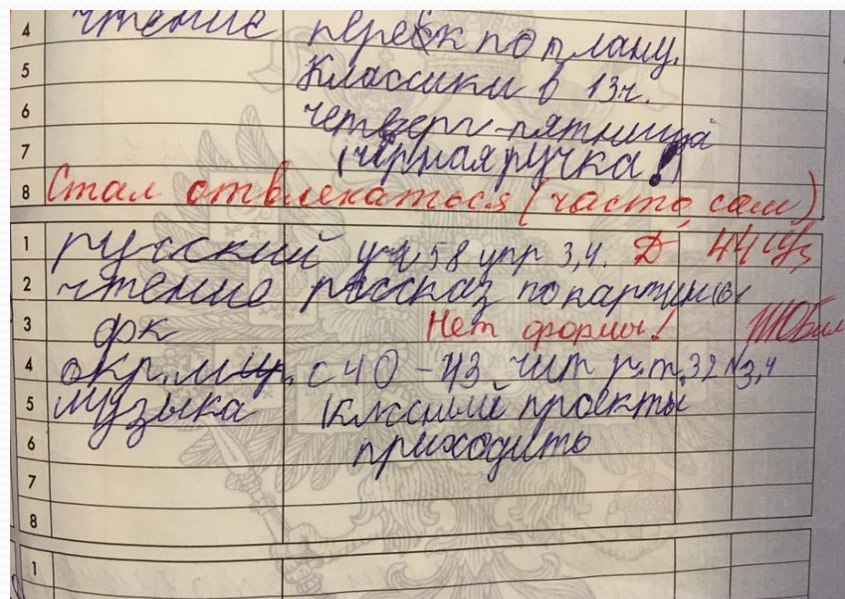 4 чтение перебк по плану.
5 Классики в 13ч.
6 четверг-пятница
7 (чёрная ручка!)
8 Стал отвлекаться (часто, сам)
1 русский уч 58 упр 3,4. Д 44
2 чтение рассказ по картин(е)
3 фк Нет формы!
4 окр.мир. с 40-43 чит р.т. 32 №3,4
5 музыка классный проекты
6 приходить
7
8
1